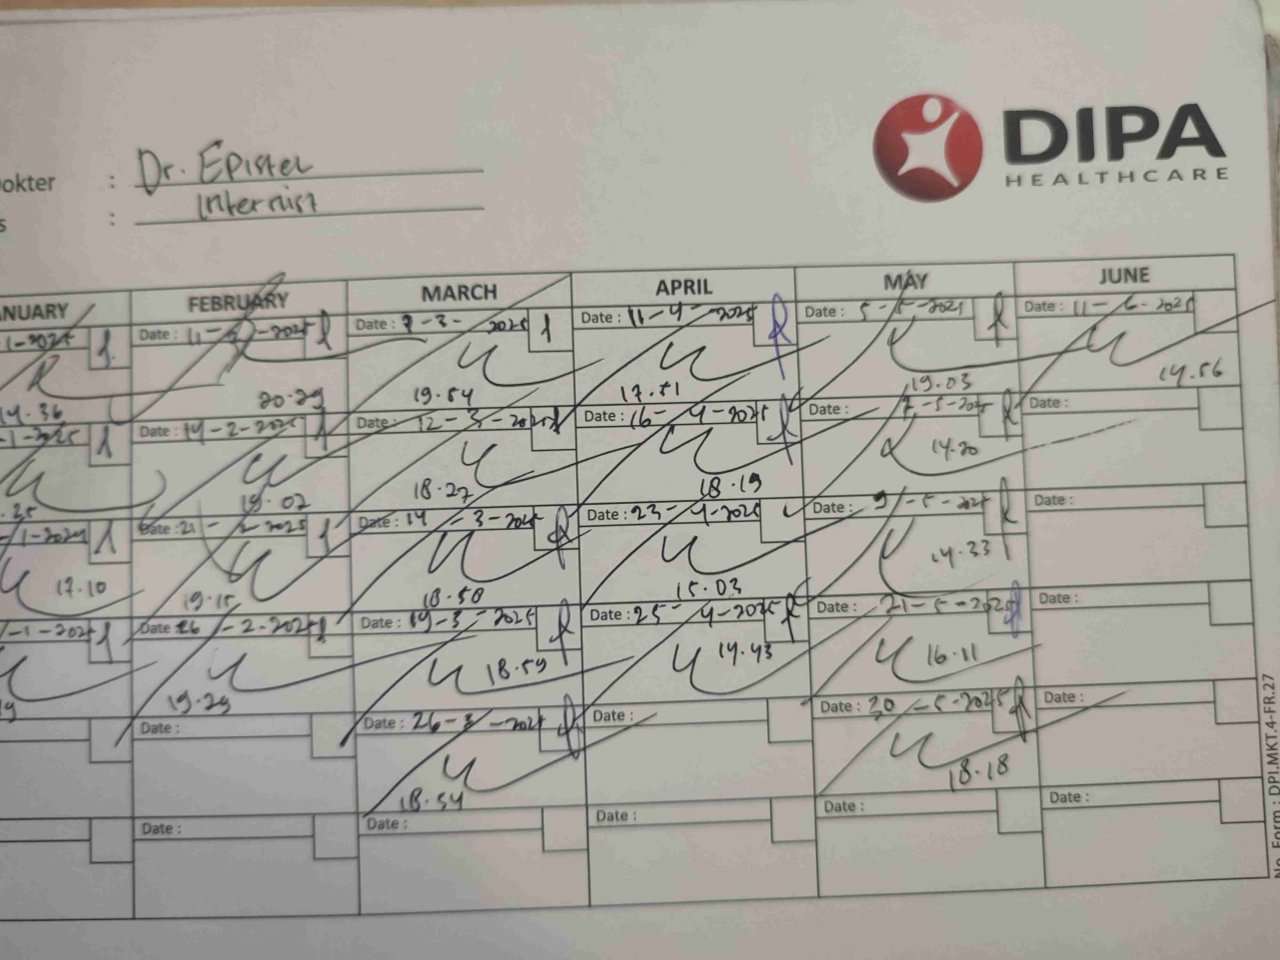 DIPA
HEALTHCARE
okter : Dr. Epistel
s : Internist
NUARY FEBRUARY MARCH APRIL MAY JUNE
1-2025 Date : 11-2-2025 Date : 7-3-2025 Date : 11-4-2025 Date : 5-5-2025 Date : 11-6-2025
14.36 20.29 19.54 17.51 19.03 14.56
-1-2025 Date : 14-2-2025 Date : 12-3-2025 Date : 16-4-2025 Date : 7-5-2025 Date :
.25 18.02 18.27 18.19 14.20
-1-2025 Date : 21-2-2025 Date : 14-3-2025 Date : 23-4-2025 Date : 9-5-2025 Date :
17.10 19.15 18.50 15.03 14.33
-1-2025 Date : 26-2-2025 Date : 19-3-2025 Date : 25-4-2025 Date : 21-5-2025 Date :
19.29 18.59 14.43 16.11
Date : Date : 26-3-2025 Date : Date : 30-5-2025 Date :
18.54 18.18
Date : Date : Date : Date : Date :
No. Form : DPI.MKT.4-FR.27